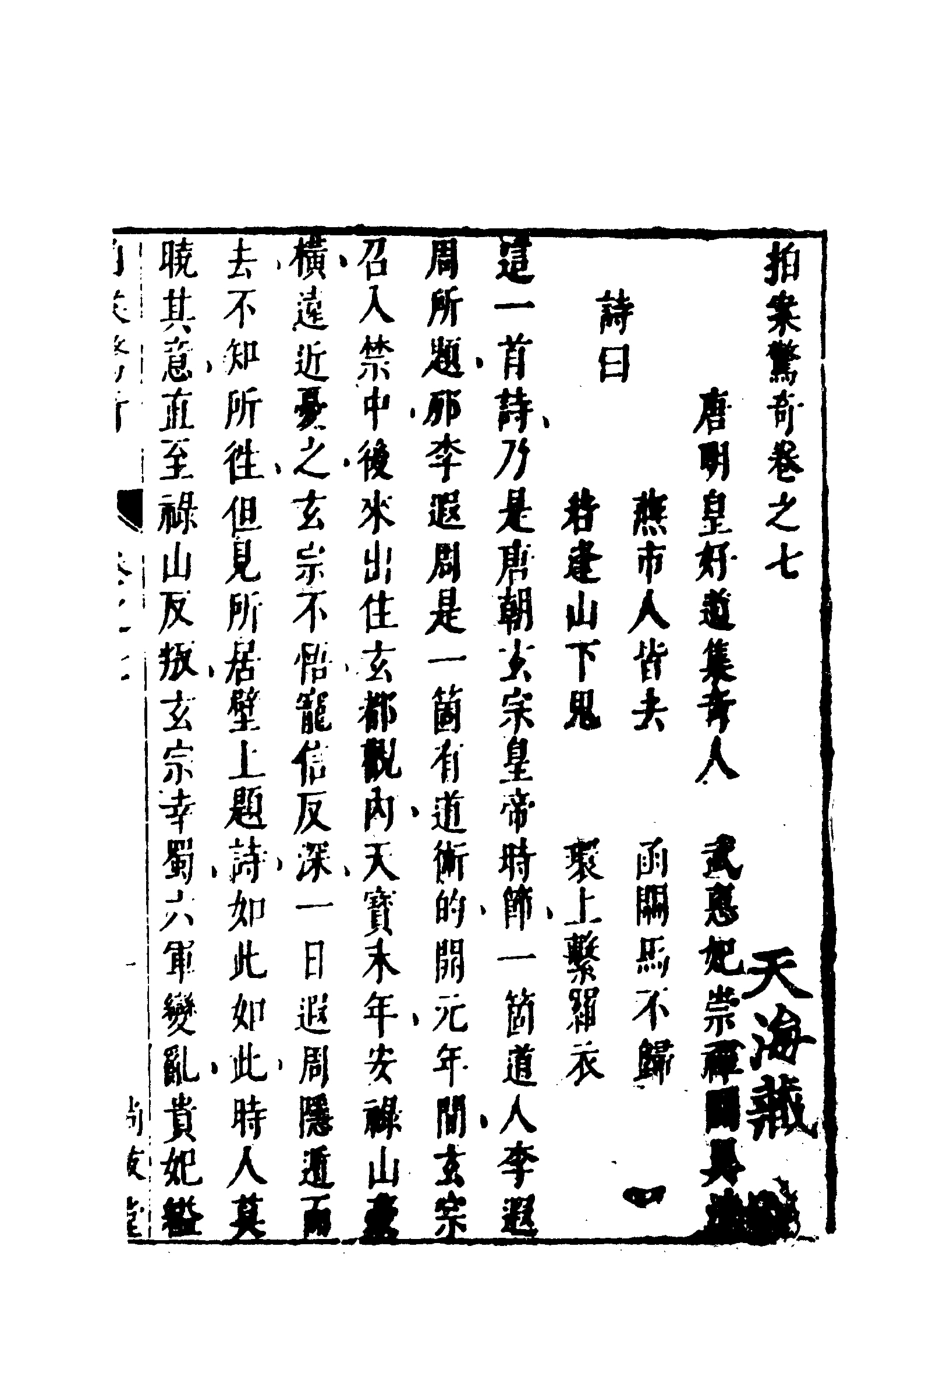 拍案驚奇卷之七
天海藏
唐明皇好道集奇人　武惠妃崇禪鬭異法
詩曰
燕市人皆去　函關馬不歸
若逢山下鬼　環上繫羅衣
這一首詩、乃是唐朝玄宗皇帝時節、一箇道人李遐
周所題、那李遐周是一箇有道術的、開元年間、玄宗
召入禁中、後來出住玄都觀內、天寶末年、安祿山豪
橫、遠近憂之、玄宗不悟、寵信反深、一日遐周隱遁而
去、不知所徃、但見所居壁上題詩、如此如此、時人莫
曉其意、直至祿山反叛、玄宗幸蜀、六軍變亂、貴妃縊
尚友堂